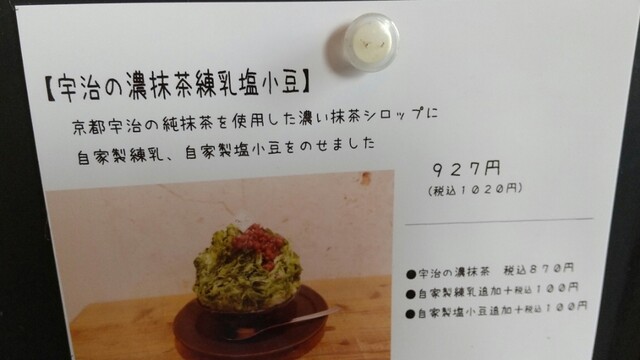 【宇治の濃抹茶練乳塩小豆】
京都宇治の純抹茶を使用した濃い抹茶シロップに
自家製練乳、自家製塩小豆をのせました
９２７円
(税込１０２０円)
●宇治の濃抹茶　税込８７０円
●自家製練乳追加＋税込１００円
●自家製塩小豆追加＋税込１００円